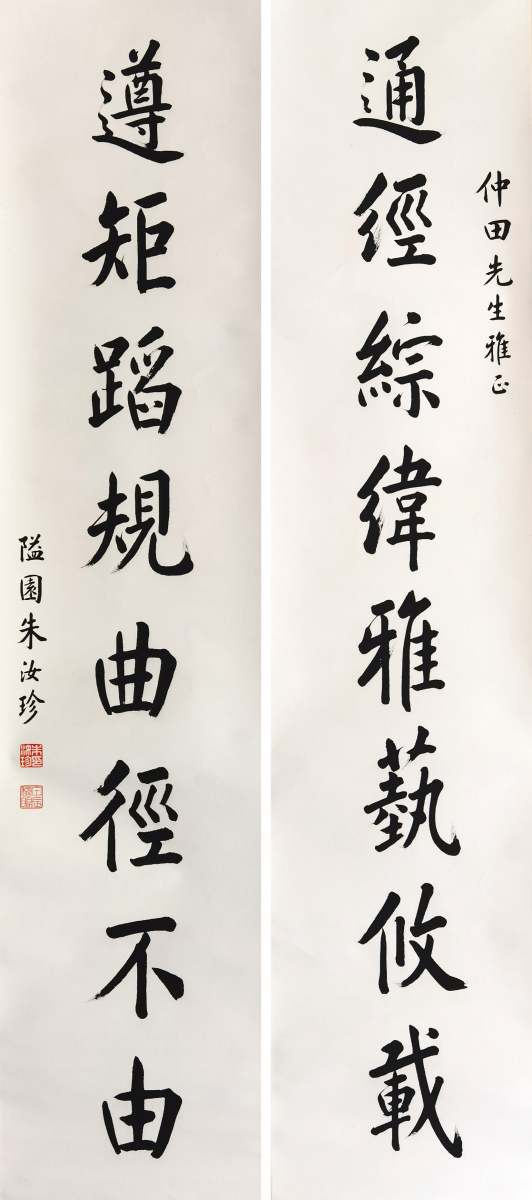 仲田先生雅正
通經綜緯雅蓺攸載
遵矩蹈規曲徑不由
隘園朱汝珍